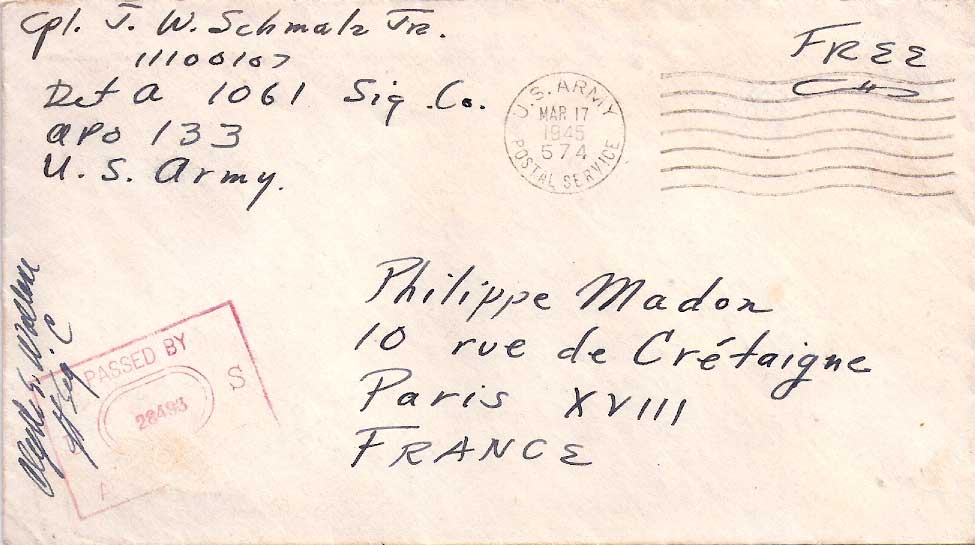 Cpl. J. W. Schmalz Jr.
11100107
Det A 1061 Sig. Co.
APO 133
U. S. Army.
U.S. ARMY
MAR 17
1945
574
POSTAL SERVICE
FREE
Philippe Madon
10 rue de Crétaigne
Paris XVIII
FRANCE
PASSED BY
S
28493
A